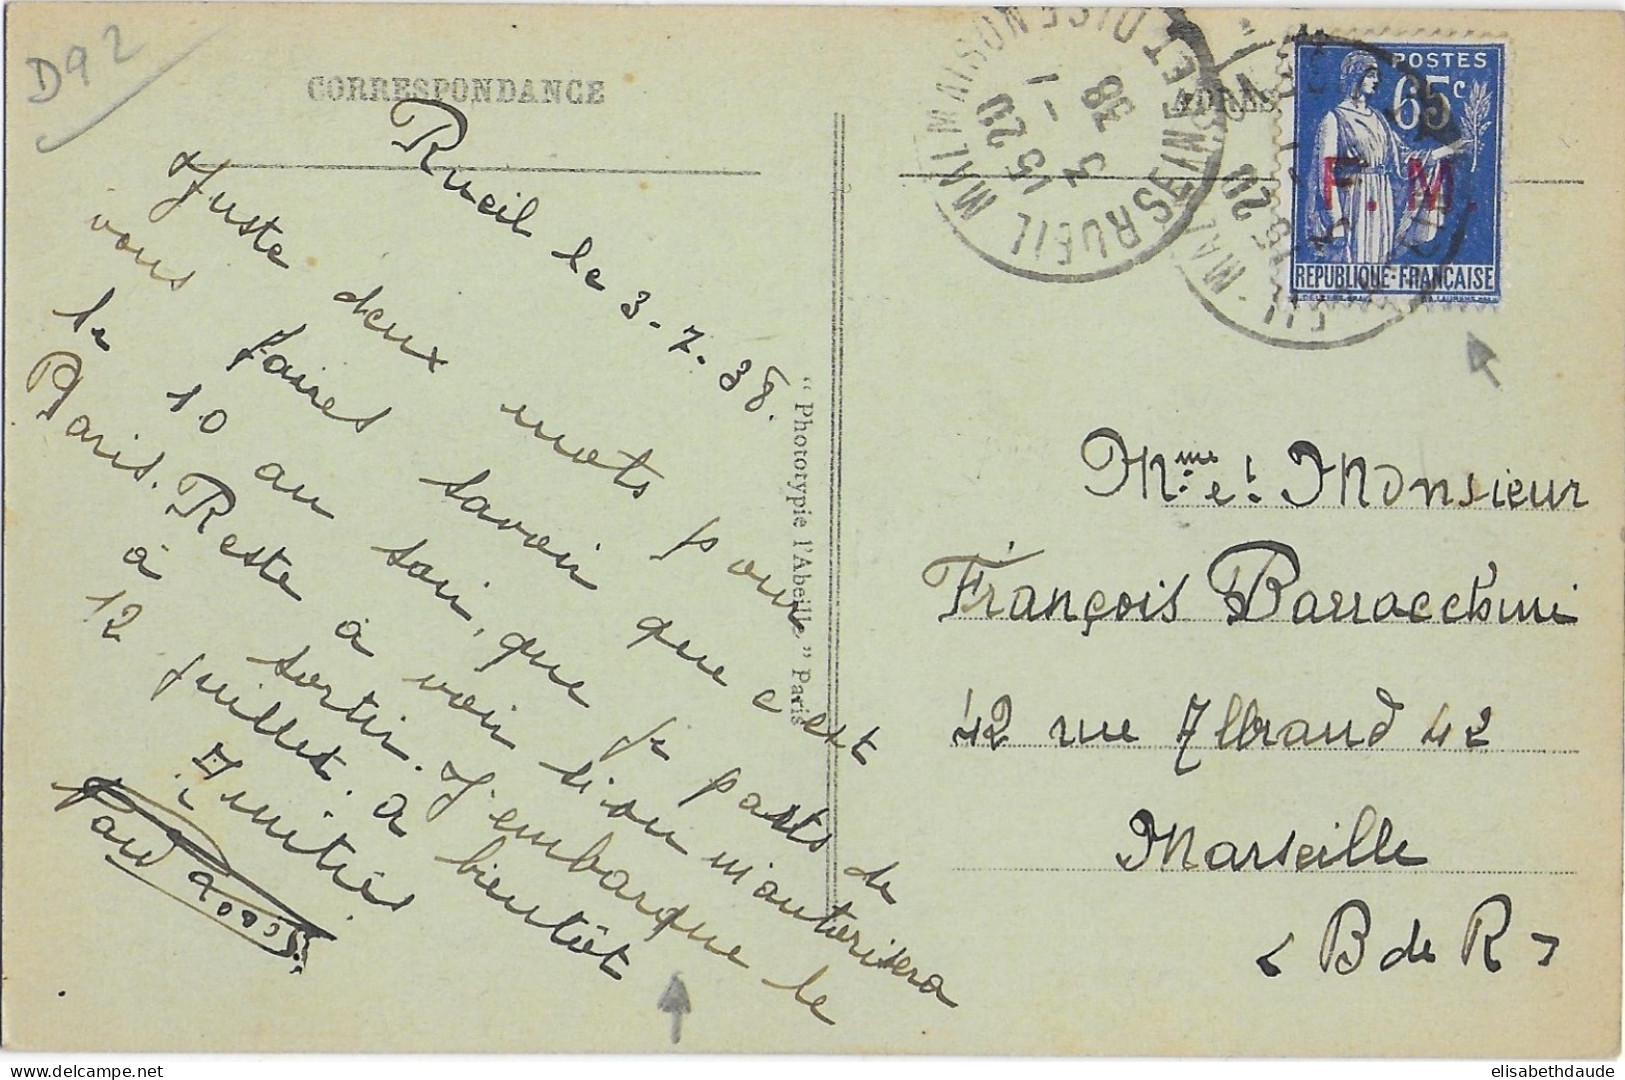 D92
CORRESPONDANCE
Rueil le 3-7-38.
Juste deux mots pour
vous faires savoir que c'est
le 10 au soir, que je parts de
Paris. Reste à voir si on m'autorisera
à sortir. J'embarque le
12 juillet. à bientôt
Amitiés
"Phototypie l'Abeille" Paris
RUEIL MALMAISON
SEINE ET OISE
15 20
3 - 1
38
POSTES
65c
F. M.
REPUBLIQUE-FRANÇAISE
Mme et Monsieur
François
42 rue 42
Marseille
(B de R)
elisabethdaude